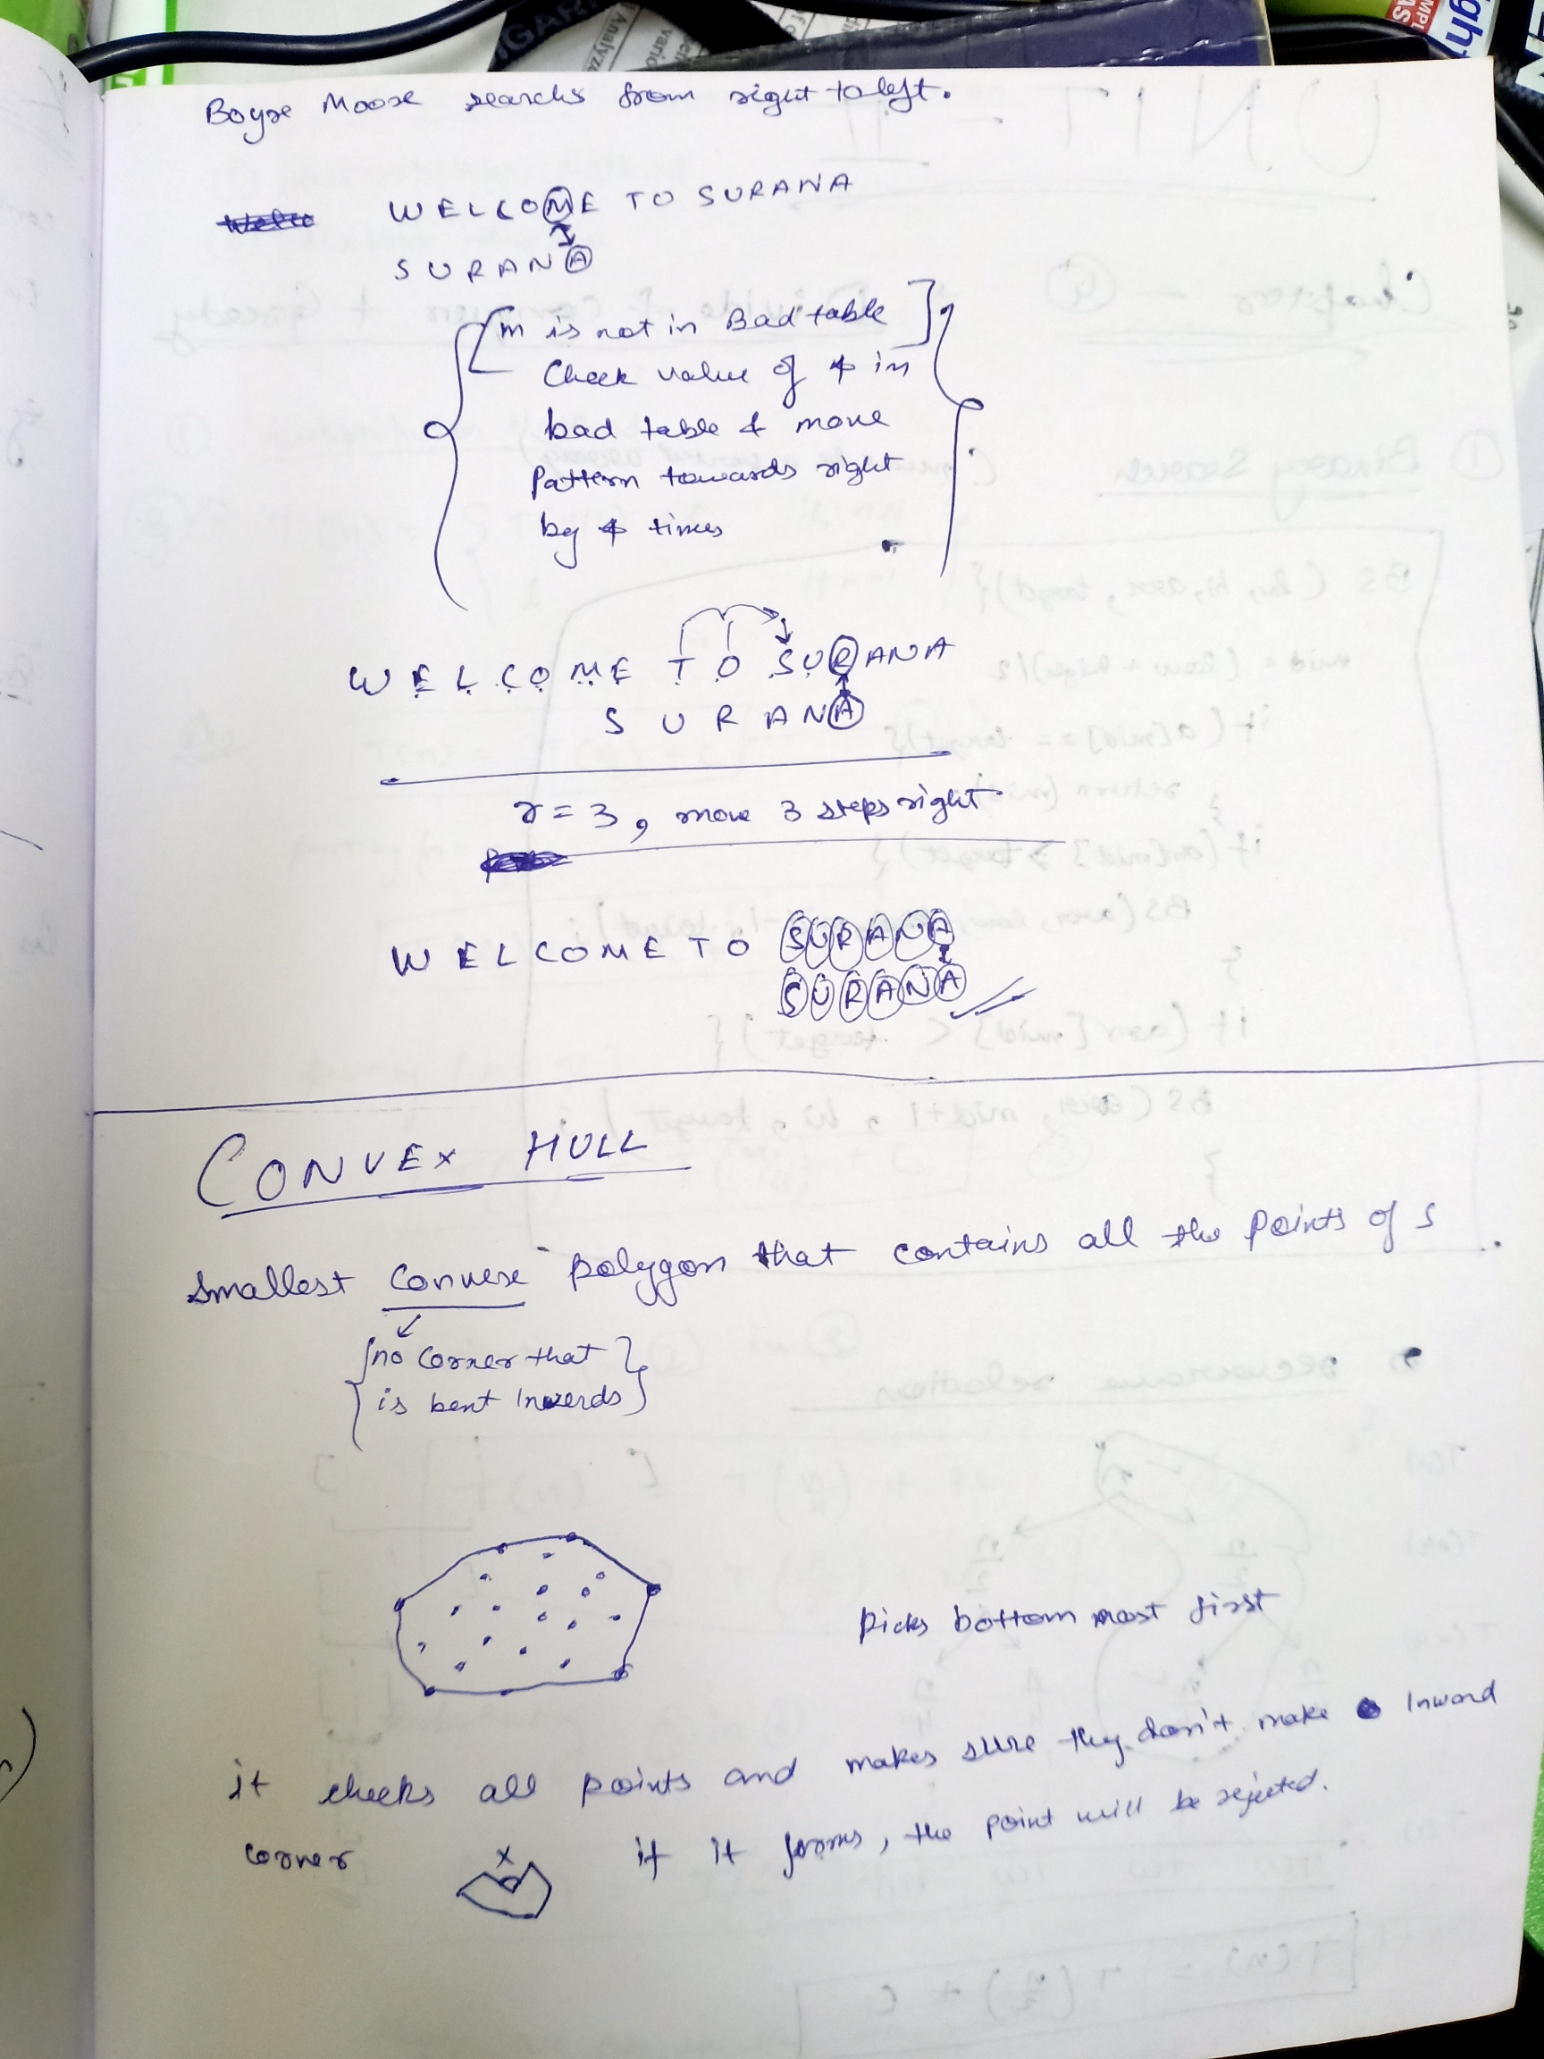 Boyre Moore searchs from right to left.
WELCOME TO SURANA
SURANA
m is not in Bad table
Check value of * in
bad table & move
Pattern towards right
by * times
WELCOME TO SURANA
SURANA
r = 3, move 3 steps right
WELCOME TO SURANA
SURANA
CONVEX HULL
Smallest convexe polygon that contains all the points of S
no corner that
is bent Inwerds
Picks bottom most first
it checks all points and makes sure they don't make Inward
corner X if it forms, the point will be rejected.